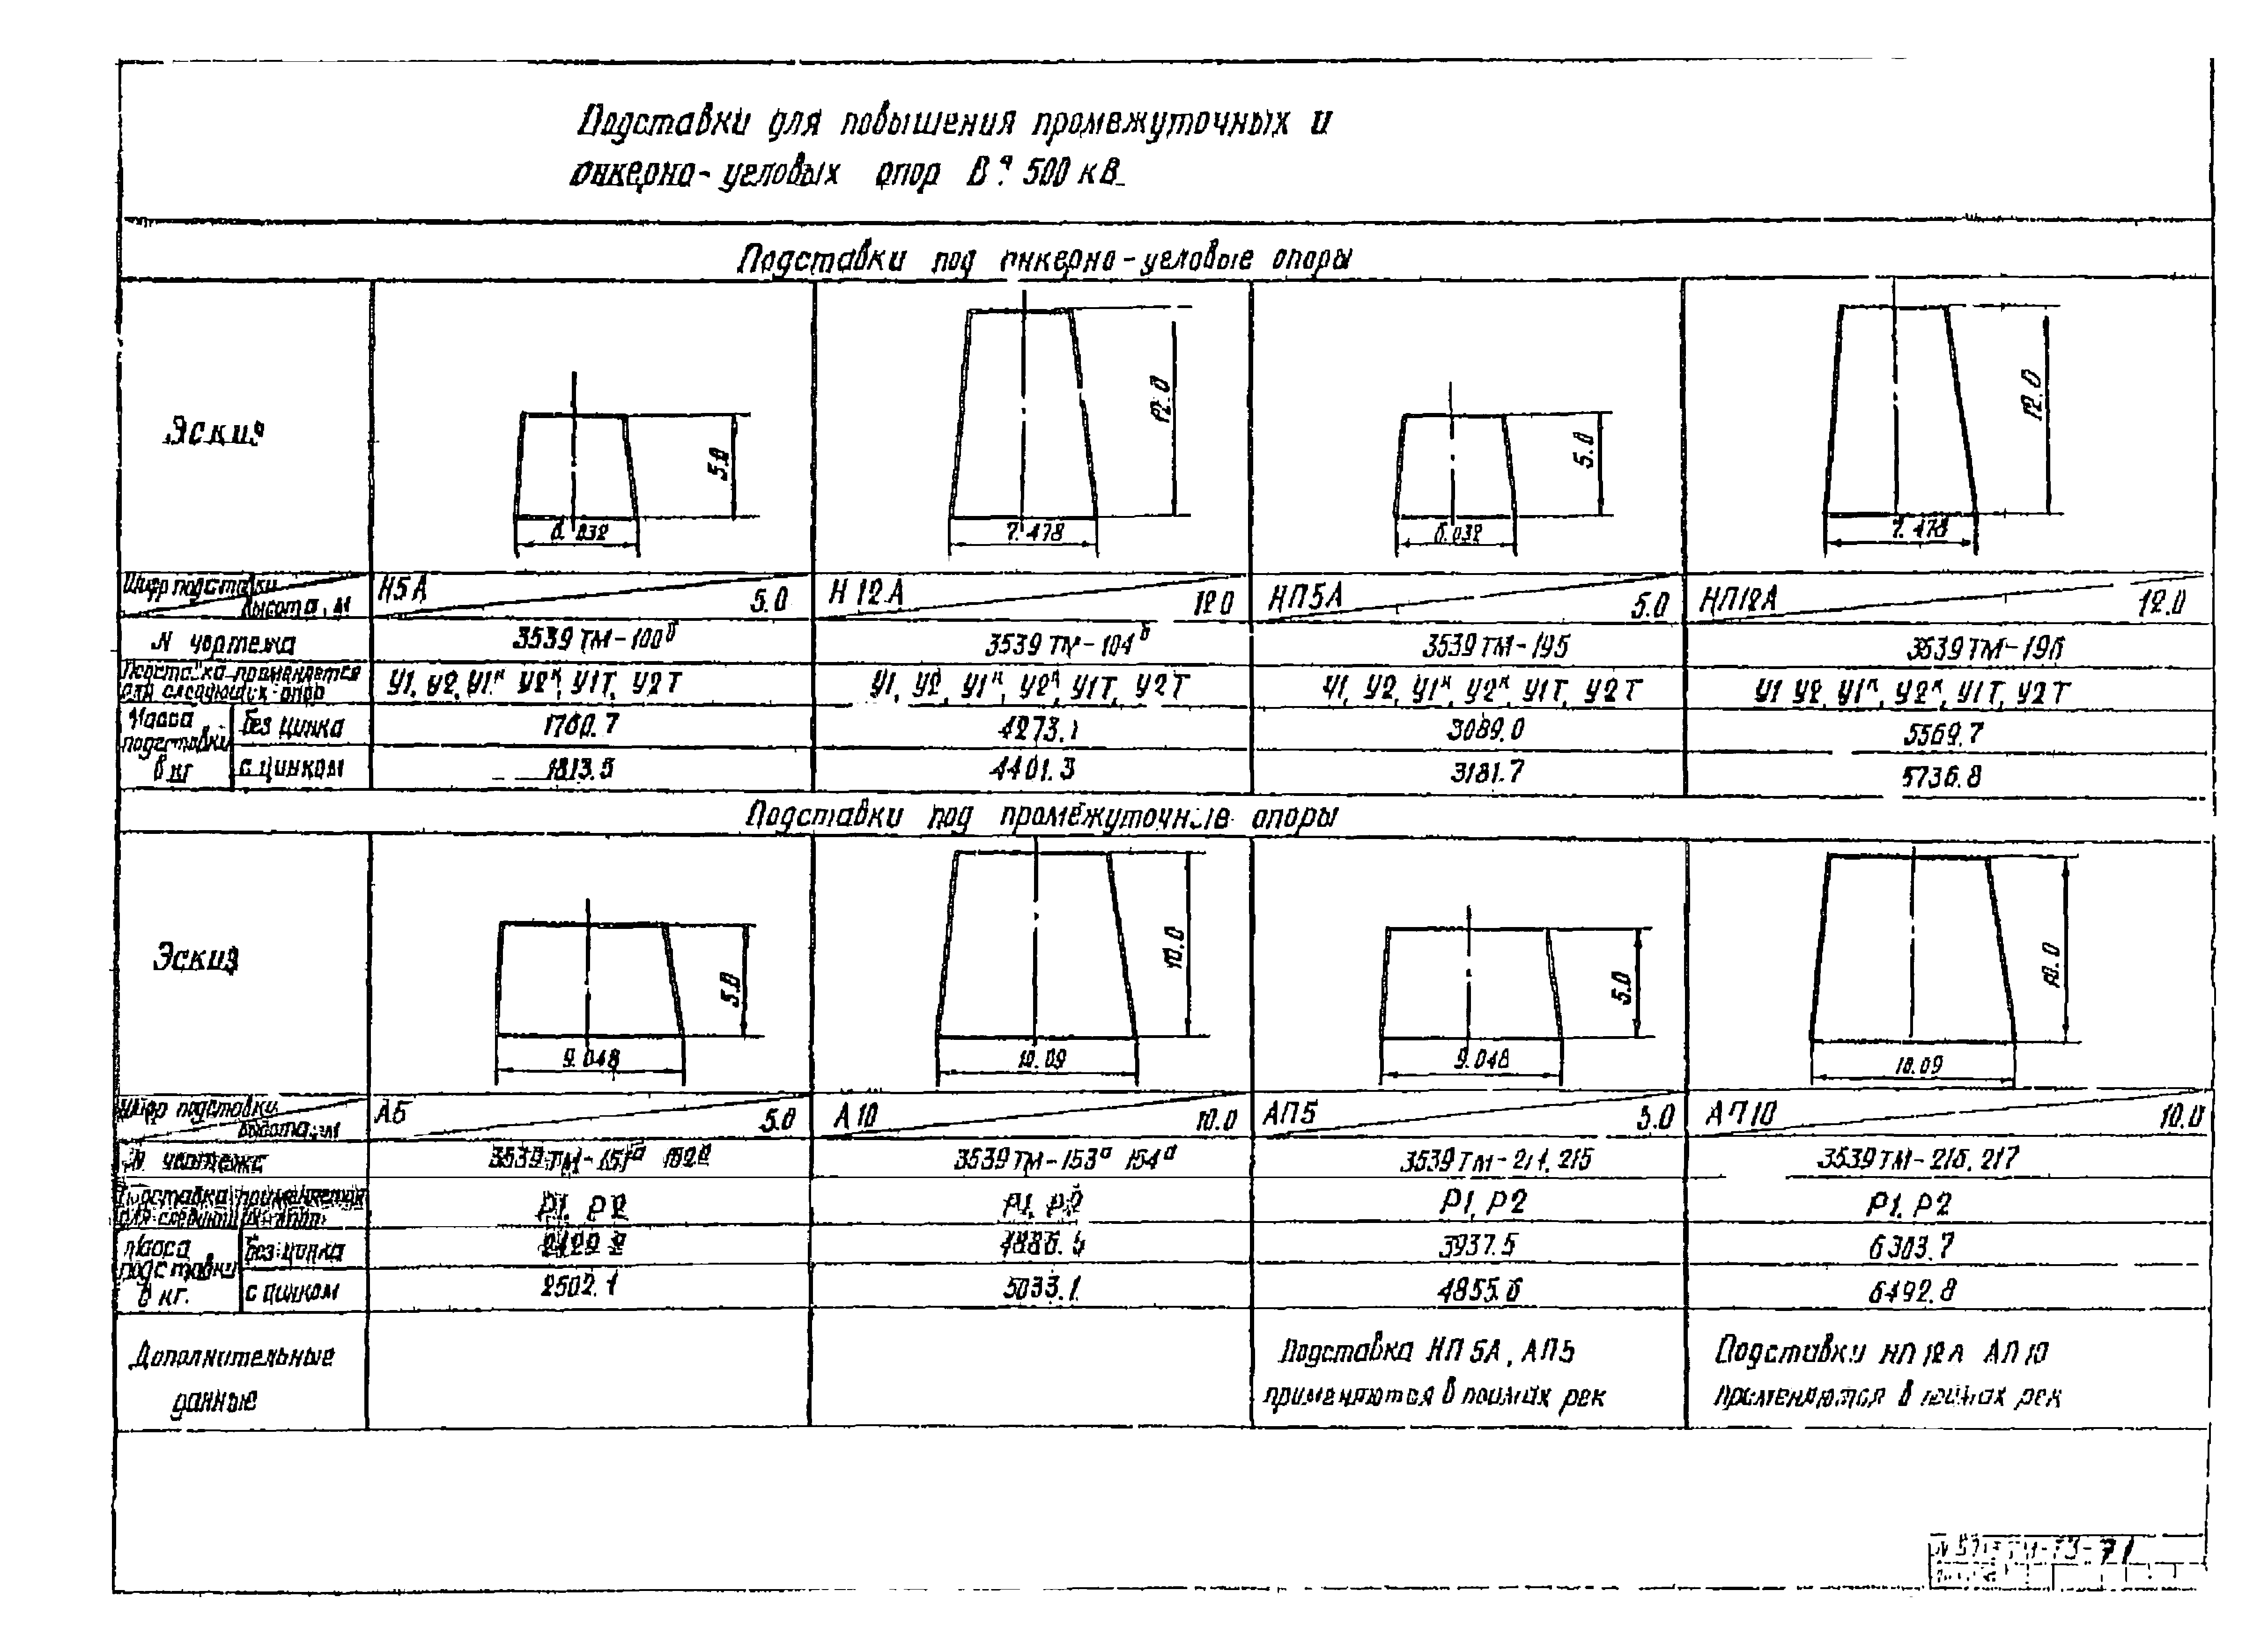 Подставки для повышения промежуточных и
анкерно-угловых опор ВЛ 500 кВ
Подставки под анкерно-угловые опоры
Эскиз
5.0
12.0
5.0
12.0
6.032
7.478
6.032
7.478
Шифр подставки
Высота, м
Н5А 5.0
Н12А 12.0
НП5А 5.0
НП12А 12.0
N чертежа 3539ТМ-100б 3539ТМ-104б 3539ТМ-195 3539ТМ-196
Подставка применяется
для следующих опор
У1, У2, У1к, У2к, У1Т, У2Т
У1, У2, У1к, У2к, У1Т, У2Т
У1, У2, У1к, У2к, У1Т, У2Т
У1, У2, У1к, У2к, У1Т, У2Т
Масса
подставки
в кг
без цинка 1760.7 4273.1 3089.0 5569.7
с цинком 1813.5 4401.3 3181.7 5736.8
Подставки под промежуточные опоры
Эскиз
5.0
10.0
5.0
10.0
9.048
10.09
9.048
10.09
Шифр подставки
Высота, м
А5 5.0
А10 10.0
АП5 5.0
АП10 10.0
N чертежа 3539ТМ-151а 152а 3539ТМ-153а 154а 3539ТМ-214, 215 3539ТМ-216, 217
Подставка применяется
для следующих опор
Р1, Р2
Р1, Р2
Р1, Р2
Р1, Р2
Масса
подставки
в кг.
без цинка 4886.5 3937.5 6303.7
с цинком 2502.1 5033.1 4855.6 6492.8
Дополнительные
данные
Подставка НП5А, АП5
применяются в поймах рек
Подставки НП12А АП10
применяются в поймах рек